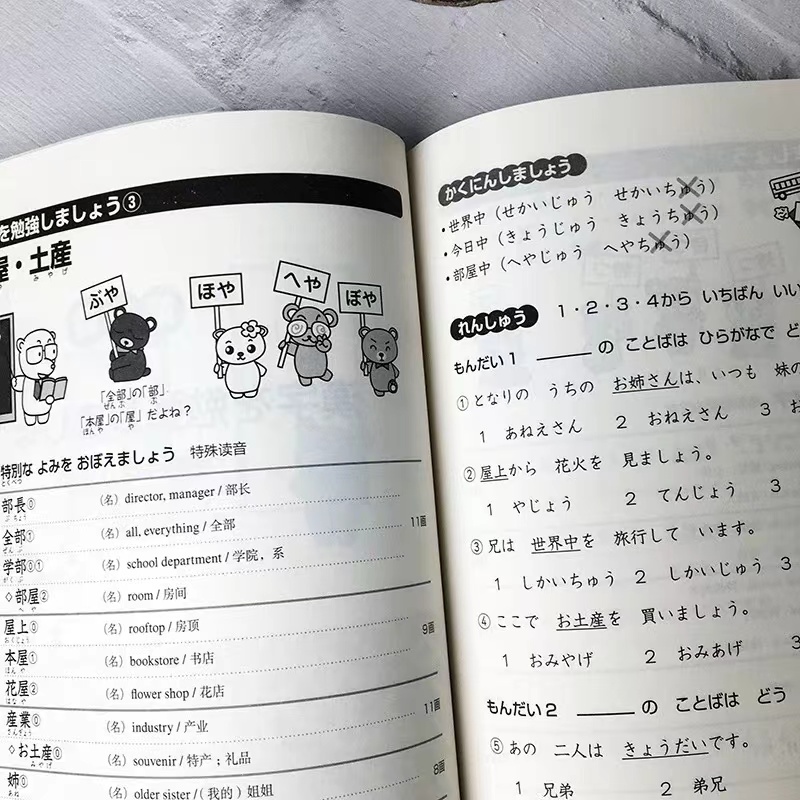 を勉強しましょう③
屋・土産
みやげ
ぶや
ほや
へや
ぼや
「全部」の「部」、
ぜんぶ ぶ
「本屋」の「屋」だよね？
ほんや や
特別な よみを おぼえましょう 特殊读音
とくべつ
部長⓪ （名） director, manager / 部长
ぶちょう
全部① （名） all, everything / 全部 11画
ぜんぶ
学部⓪① （名） school department / 学院，系
がくぶ
◇部屋② （名） room / 房间
へや
屋上⓪ （名） rooftop / 房顶
おくじょう
本屋① （名） bookstore / 书店 9画
ほんや
花屋② （名） flower shop / 花店
はなや
産業⓪ （名） industry / 产业 11画
さんぎょう
◇お土産⓪ （名） souvenir / 特产；礼品
みやげ
姉⓪ （名） older sister /（我的）姐姐 8画
あね
かくにんしましょう
・世界中（せかいじゅう せかいちゅう）
・今日中（きょうじゅう きょうちゅう）
・部屋中（へやじゅう へやちゅう）
れんしゅう 1・2・3・4から いちばん いい
もんだい1 ＿＿＿の ことばは ひらがなで ど
①となりの うちの お姉さんは、いつも 妹の
1 あねえさん 2 おねえさん 3 お
②屋上から 花火を 見ましょう。
1 やじょう 2 てんじょう 3
③兄は 世界中を 旅行して います。
1 しかいちゅう 2 しかいじゅう 3
④ここで お土産を 買いましょう。
1 おみやげ 2 おみあげ 3
もんだい2 ＿＿＿の ことばは どう
⑤あの 二人は きょうだいです。
1 兄弟 2 弟兄